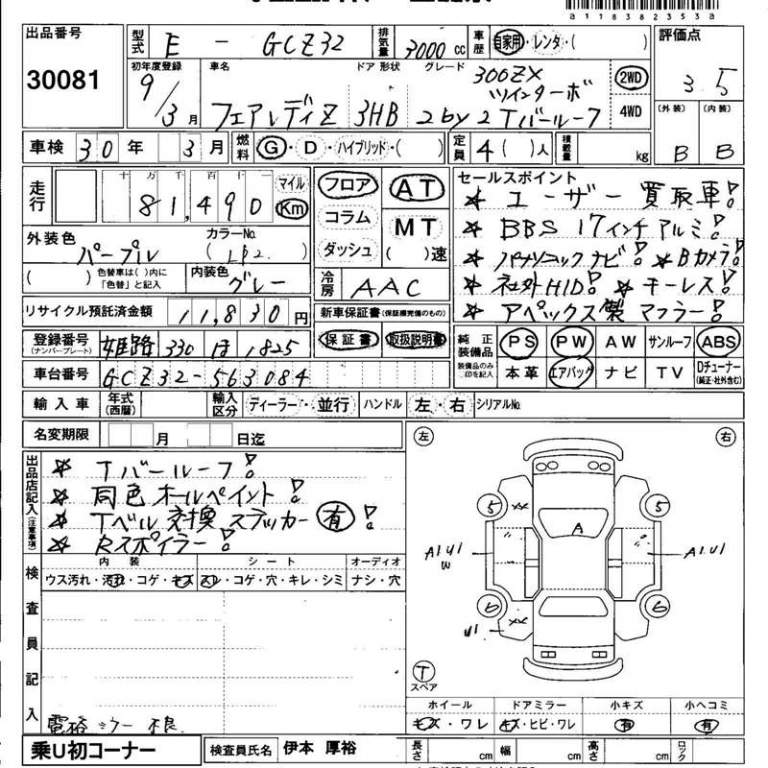 a1183823S3a
出品番号 型式 E - GCZ32 排気量 3000 cc 車歴 自家用・レンタ・( ) 評価点
30081 3.5
初年度登録 車名 ドア 形状 グレード 300ZX 2WD
9/3月 フェアレディZ 3HB ツインターボ 2by2 Tバールーフ 4WD
(外装) (内装)
B B
車検 30年 3月 燃料 G・D・ハイブリッド・( ) 定員 4( )人 積載量 kg
走行 十 万 千 百 十 一 81,490 マイル Km
フロア AT
コラム MT
ダッシュ ( )速
セールスポイント
★ ユーザー買取車!
★ BBS 17インチアルミ!
★ パナソニックナビ! ★ Bカメラ!
★ 社外HID! ★ キーレス!
★ アペックス製マフラー!
外装色 パープル カラーNo. ( LP2. )
( ) 色替車は( )内に「色替」と記入 内装色 グレー
冷房 AAC
リサイクル預託済金額 11,830円
新車保証書(保証積完備のもの)
保証書 取扱説明書
登録番号 (ナンバープレート) 姫路 330 ほ 1825
純正装備品 PS PW AW サンルーフ ABS
装備品のみ印を記入 本革 エアバッグ ナビ TV Dチューナー (純正・社外含む)
車台番号 GCZ32-563084
輸入車 年式(西暦) 輸入区分 ディーラー・並行 ハンドル 左・右 シリアルNo.
名変期限 月 日迄
出品店記入(注意事項)
★ Tバールーフ!
★ 同色オールペイント!
★ Tベル交換ステッカー有!
★ Rスポイラー!
左 右
5 XX 5
A
A1U1 W A1U1
6 XX 6
U1
T
スペア
検査員記入
内装 シート オーディオ
ウス汚れ・汚れ・コゲ・キズ スレ・コゲ・穴・キレ・シミ ナシ・穴
ホイール ドアミラー 小キズ 小ヘコミ
キズ・ワレ キズ・ヒビ・ワレ 有 有
電格ミラー不良
乗U初コーナー 検査員氏名 伊本 厚裕 長さ cm 幅 cm 高さ cm ロック